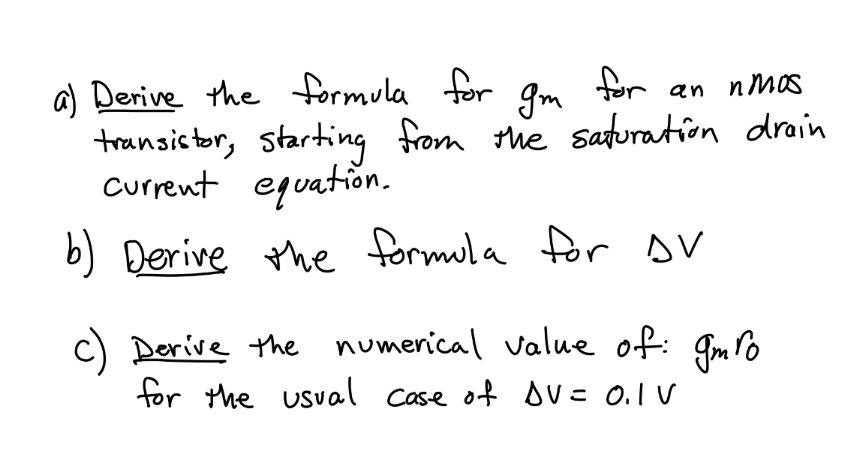 a) Derive the formula for gm for an nMOS
transistor, starting from the saturation drain
current equation.
b) Derive the formula for ΔV
c) Derive the numerical value of: gmro
for the usual case of ΔV = 0.1 V